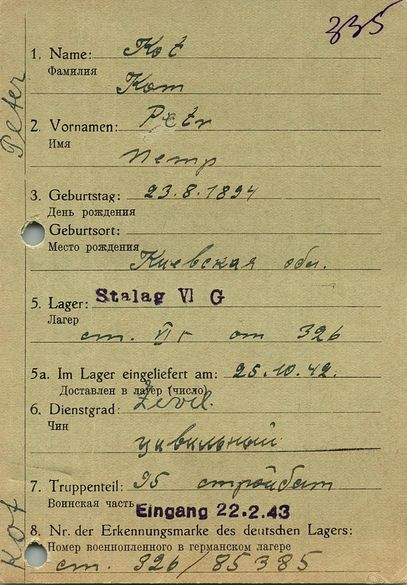 335
1. Name: Kot
Фамилия
Кот
2. Vornamen: Petr
Имя
Петр
3. Geburtstag: 23.8.1894
День рождения
Geburtsort:
Место рождения
Киевская обл.
5. Lager: Stalag VI G
Лагер
ст. VI г от 326
5a. Im Lager eingeliefert am: 25.10.42.
Доставлен в лагер (число)
6. Dienstgrad: Zevil.
Чин
цивильный
7. Truppenteil: 95 стройбат
Воинская часть
Eingang 22.2.43
8. Nr. der Erkennungsmarke des deutschen Lagers:
Номер военнопленного в германском лагере
ст. 326/85385
Peter
Kot